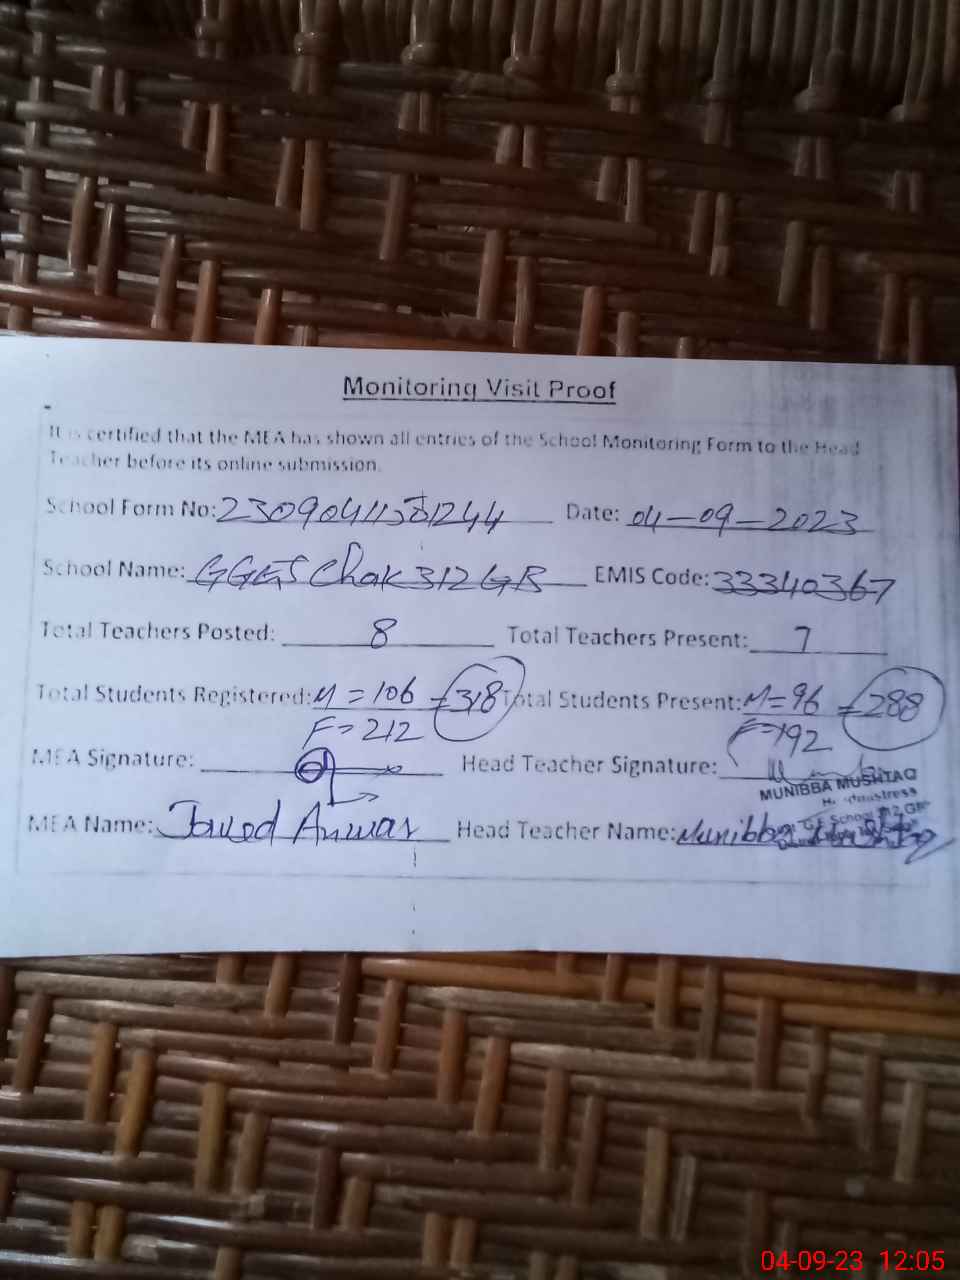 Monitoring Visit Proof
It is certified that the MEA has shown all entries of the School Monitoring Form to the Head
Teacher before its online submission.
School Form No: Date: 04-09-2023
School Name: GGES Chak 312 GB EMIS Code: 33340367
Total Teachers Posted: 8 Total Teachers Present: 7
Total Students Registered: M = 106 = 318 Total Students Present: M = 96 = 288
F = 212 F = 192
MEA Signature: Head Teacher Signature:
MUNIBBA MUSHTAQ
Headmistress
MEA Name: Javed Anwar Head Teacher Name: Munibba Mushtaq
04-09-23 12:05